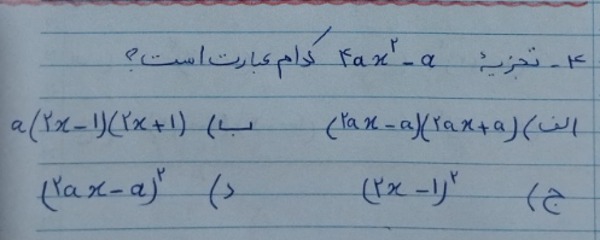 ۴ـ تجزیهٔ ۴ax²-a کدام عبارت است؟
الف) (۲ax-a)(۲ax+a) ب) a(۲x-۱)(۲x+۱)
ج) (۲x-۱)² د) (۲ax-a)²